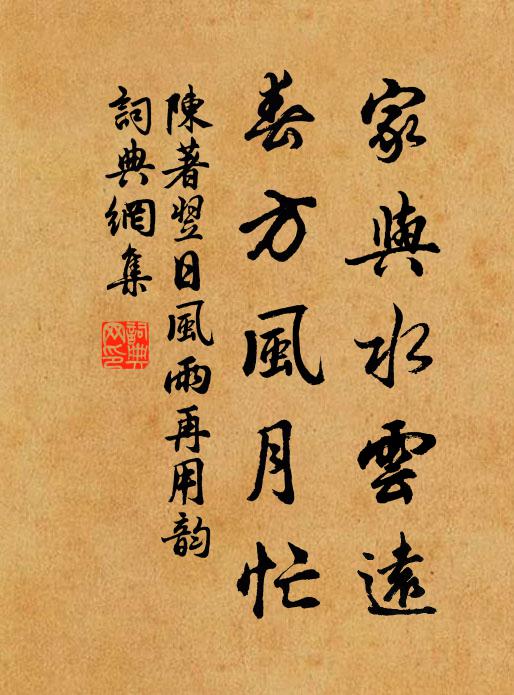 家與水雲遠
春方風月忙
陳著翌日風雨再用韵
詞典網集
詞典网印